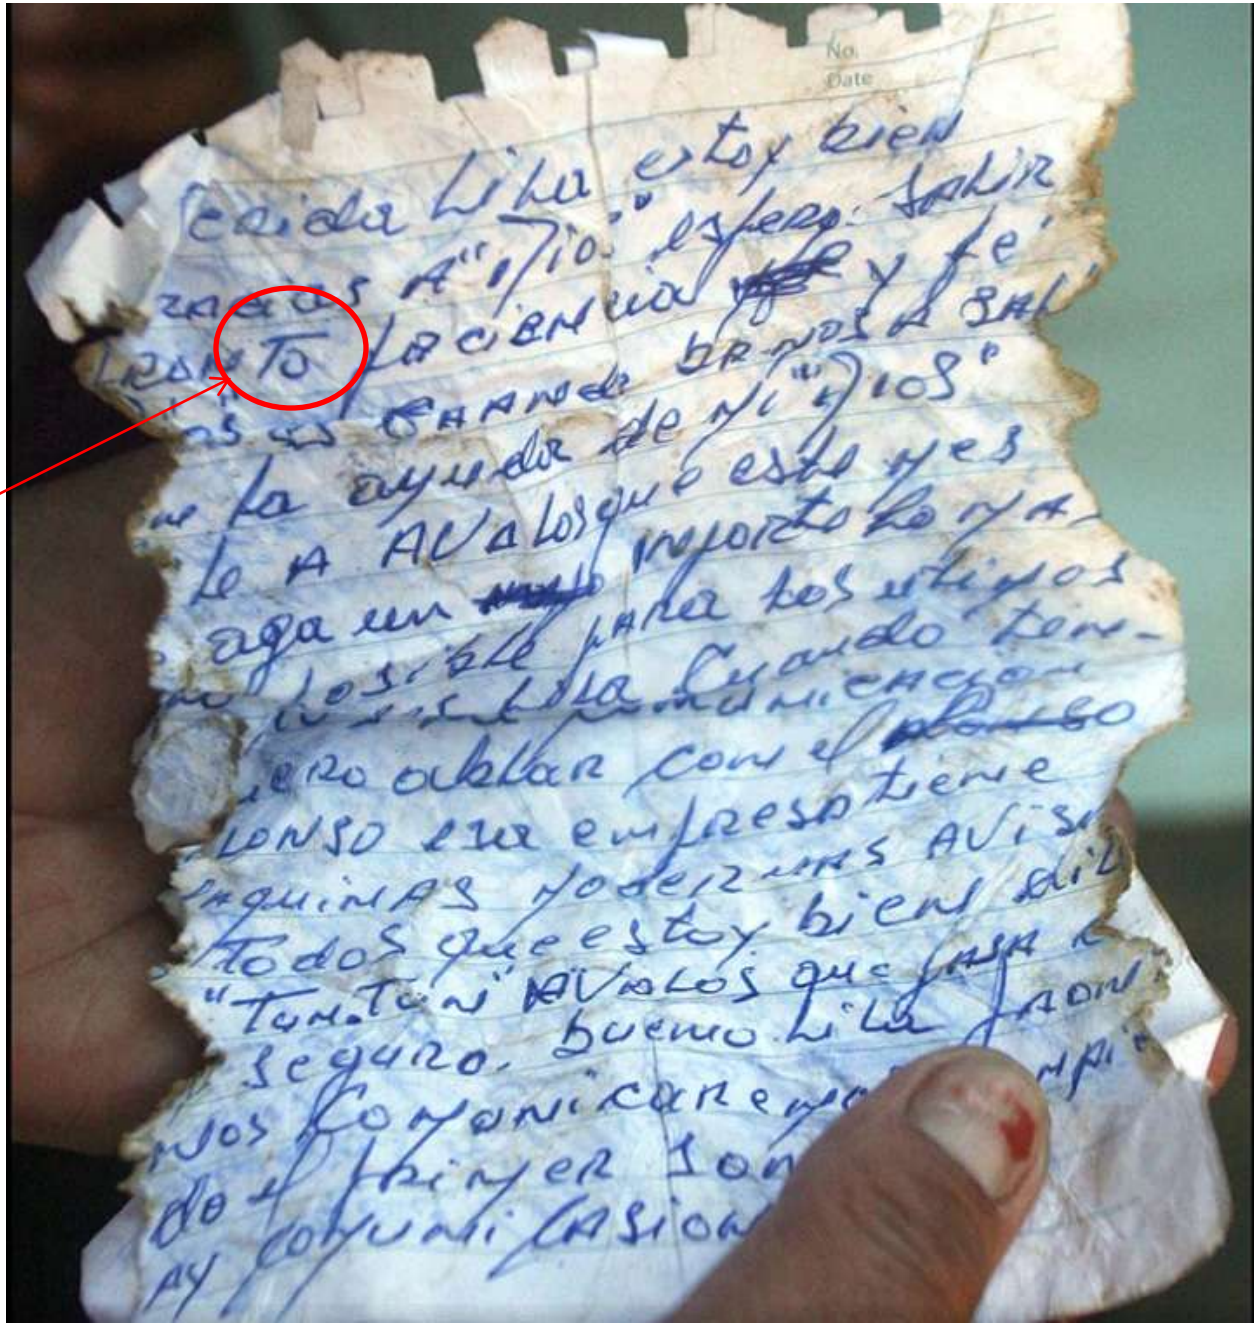 No.
Date
erida Lila estoy bien
racias A "Dios" espero. SaLiR
PRONTO PacieNcia y fe
banos A SAL
la ayuda de Mi "DiOS"
le A AVALOS que este mes
aga un importe lo mA-
posible para los ultimos
Lila Cuando ten-
comunicacion
ero ablar con el
LONSO esa empresa tiene
AquiNAS MoDERNAS AVisa
Todos que estoy bien
"TONTON" AVALOS que PASA
seguro. bueno Lila PRON
NOS COMUNICAREMOS
do el primer son
AY comuni CASion